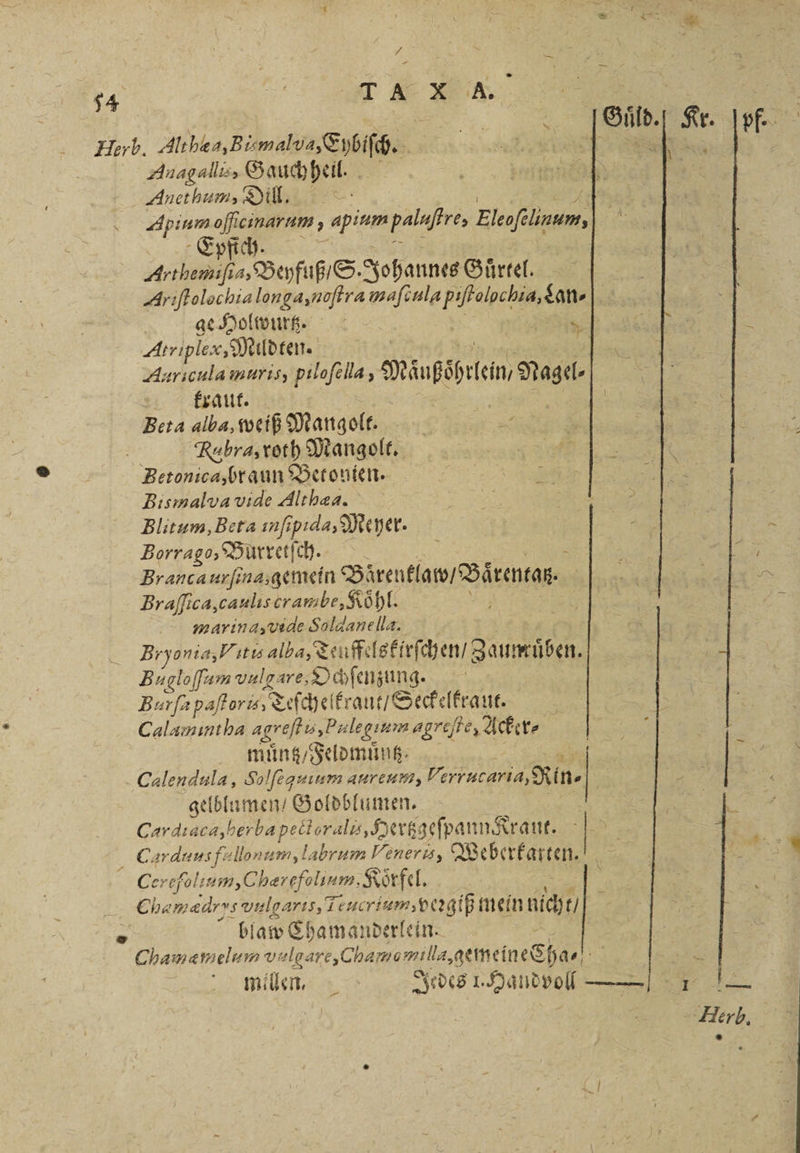 54 TAXA.
Gůld. Kr. pf.
Herb. Althæa, Bismalva, Eybisch.
Anagallis, Gauchheil.
Anethum, Dill.
Apium officinarum, apium palustre, Eleoselinum,
Epffich.
Arthemisia, Beyfuß/S. Johannes Gürtel.
Aristolochia longa, nostra mascula pistolochia, Lan-
ge Holwurtz.
Atriplex, Miltden.
Auricula muris, pilosella, Mäußöhrlein/Nagel-
kraut.
Beta alba, weiß Mangolt.
Rubra, roth Mangolt.
Betonica, braun Betonien.
Bismalva vide Althæa.
Blitum, Beta insipida, Meyer.
Borrago, Burretsch.
Branca ursina, gemein Bärenklaw/Bärentatz.
Brassica, caulis crambe, Köhl.
marina, vide Soldanella.
Bryonia, Vitis alba, Teuffelskirschen/Zaunrüben.
Buglossum vulgare, Ochsenzung.
Bursa pastoris, Teschelkraut/Seckelkraut.
Calamintha agrestis, Pulegium agreste, Acker-
müntz/Feldmüntz.
Calendula, Solsequium aureum, Verrucaria, Rin-
gelblumen/Goldblumen.
Cardiaca, herba pectoralis, Hertzgespann Kraut.
Carduus fullonum, labrum Veneris, Weberkarten.
Cerefolium, Chærefolium, Körfel.
Chamædrys vulgaris, Teucrium, vergiß mein nicht/
blaw Chamanderlein.
Chamæmelum vulgare, Chamomilla, gemeine Cha-
millen. Jedes 1. Handvoll — 1 —
Herb.